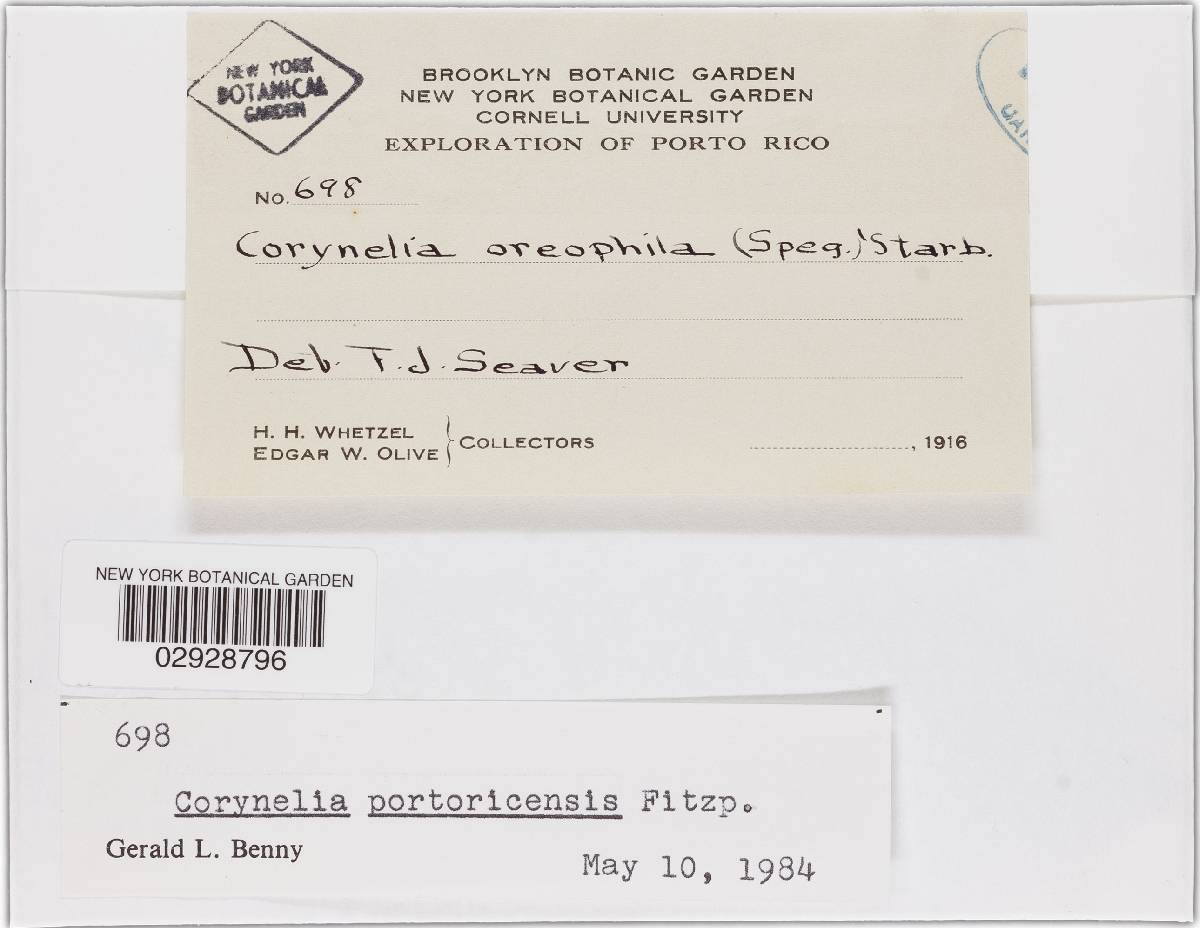 NEW YORK
BOTANICAL
GARDEN
BROOKLYN BOTANIC GARDEN
NEW YORK BOTANICAL GARDEN
CORNELL UNIVERSITY
EXPLORATION OF PORTO RICO
No. 698
Corynelia oreophila (Speg.) Starb.
Det. F. J. Seaver
H. H. WHETZEL
EDGAR W. OLIVE } COLLECTORS
, 1916
NEW YORK BOTANICAL GARDEN
02928796
698
Corynelia portoricensis Fitzp.
Gerald L. Benny
May 10, 1984